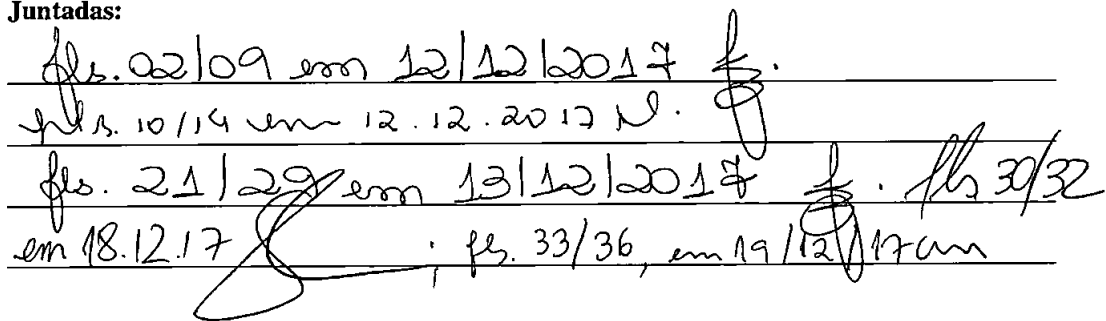 Juntadas:
fls. 02/09 em 12/12/2017
fls. 10/14 em 12.12.2017
fls. 21/29 em 13/12/2017 fls 30/32
em 18.12.17 ; fls. 33/36, em 19/12/17